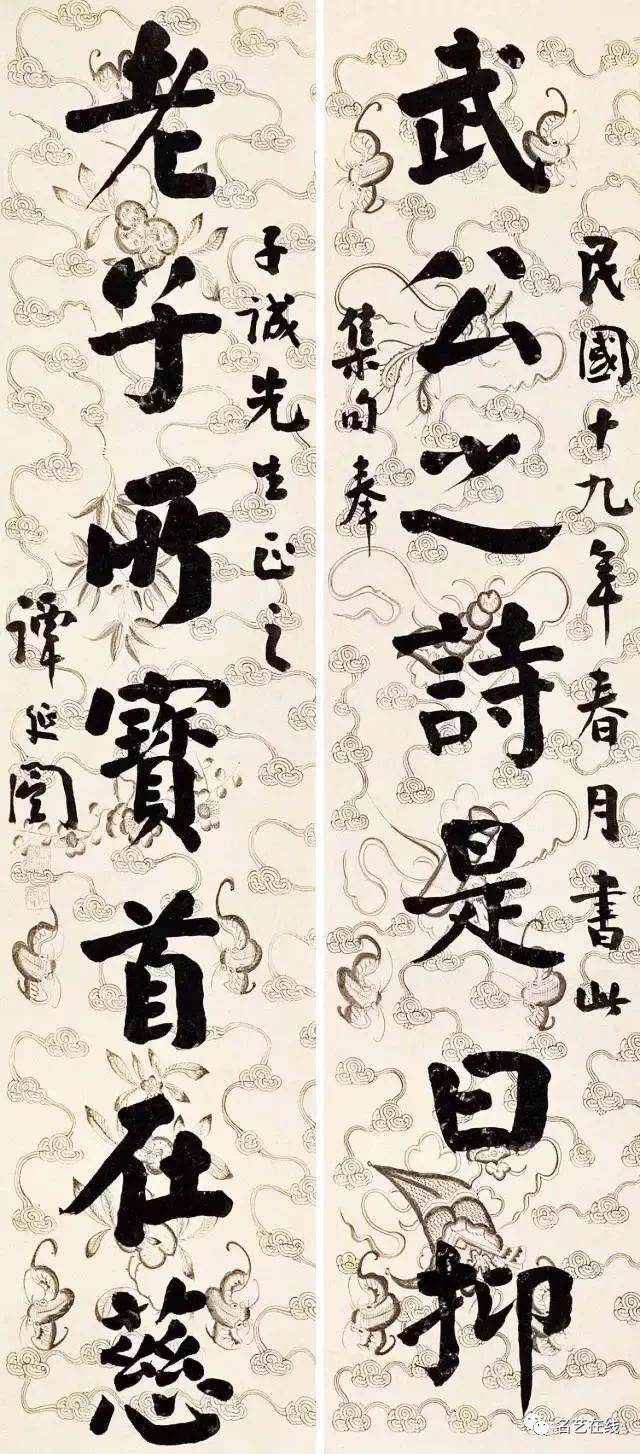 民國十九年春月書此
武公之詩是曰抑
集句奉
子誠先生正之
老子所寶首在慈
譚延闓
名艺在线